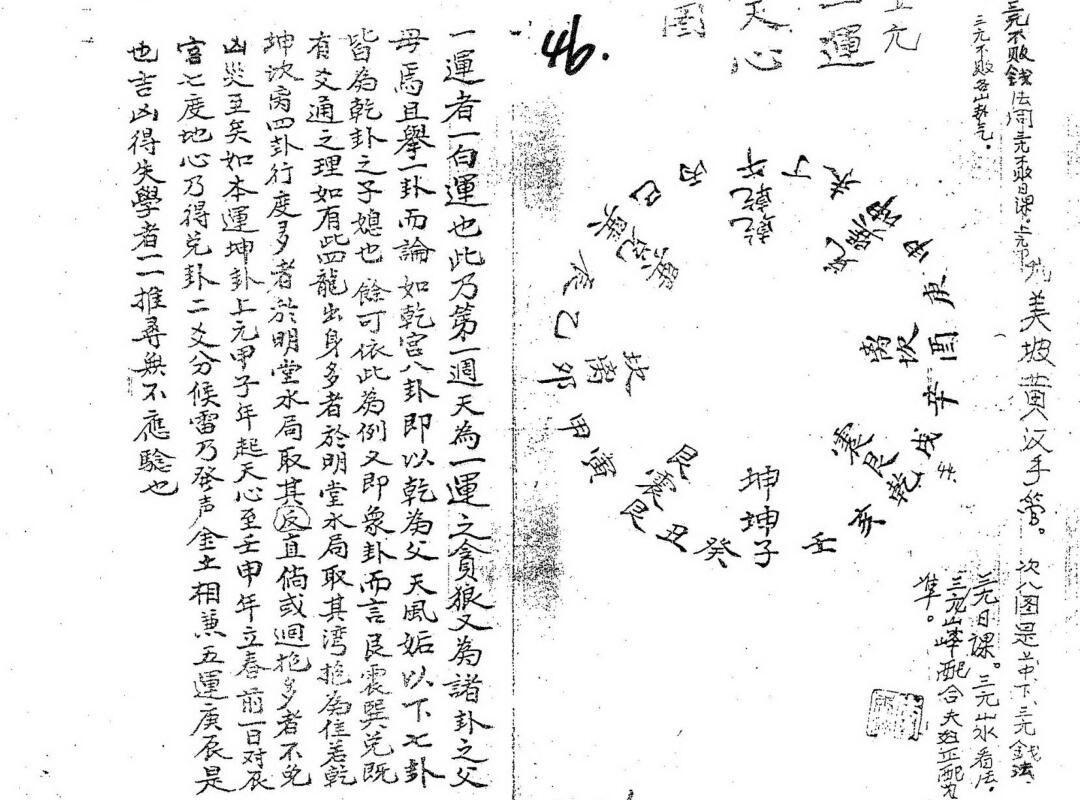 三元不敗錢法同三元不敗日課上元甲
三元不敗各山卦气。
美坡黄汉手管。
次八图是上中下三元錢法
三元日課。三元山水看法。
三元山峰配合夫妇正配为
準。
上元
一運
天心
圖
46.
午 丁 未 坤 申 庚 酉 辛 戌 乾 亥 壬 子 癸 丑 艮 寅 甲 卯 乙 辰 巽 巳 丙
乾乾
坎离
艮震
坤坤
震艮
离坎
兑巽
44.
一運者一白運也此乃第一週天為一運之貪狼又為諸卦之父
母焉且舉一卦而論如乾宮八卦即以乾為父天風姤以下七卦
皆為乾卦之子媳也餘可依此為例又即衆卦而言艮震巽兑既
有爻通之理如有此四龍出身多者於明堂水局取其湾抱為佳若乾
坤坎离四卦行度多者於明堂水局取其反直倘或迴抱多者不免
凶災至矣如本運坤卦上元甲子年起天心至壬申年立春前一日对辰
宮七度地心乃得兑卦二爻分候雷乃發声金土相兼五運庚辰是
也吉凶得失學者一一推尋無不應驗也